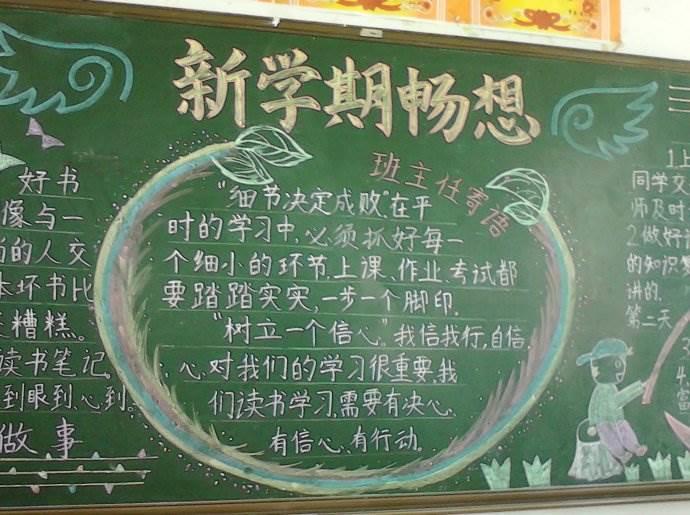 新学期畅想
好书
像与一
的人交
环书比
糟糕。
读书笔记,
到眼到、心到。
做事
班主任寄语
“细节决定成败”在平
时的学习中,必须抓好每一
个细小的环节.上课、作业、考试都
要踏踏实实,一步一个脚印.
“树立一个信心”。我信我行,自信
心对我们的学习很重要,我
们读书学习,需要有决心、
有信心、有行动。
1.上
同学交
师及时
2.做好
的知识
讲的.
第二天
3
4.